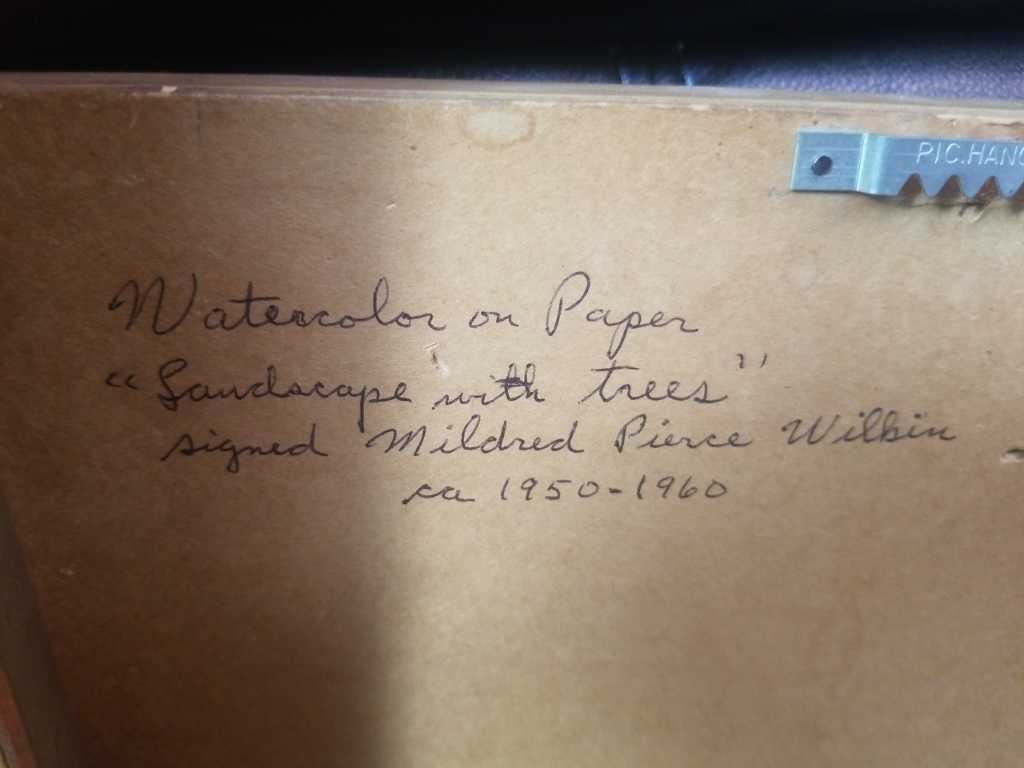 PIC.HANG
Watercolor on Paper
"Landscape with trees"
signed Mildred Pierce Wilkin
ca 1950-1960